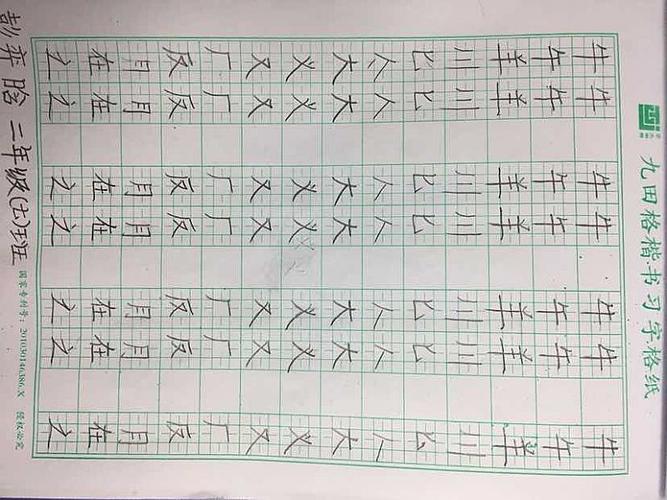 九田格楷书习字格纸
牛牛牛牛牛牛牛
午午午午午午午
羊羊羊羊羊羊羊
川川川川川川川
匕匕匕匕匕匕匕
人人人人人人人
大大大大大大大
义义义义义义义
又又又又又又又
厂厂厂厂厂厂厂
反反反反反反反
月月月月月月月
在在在在在在在
之之之之之之之
彭弈晗 二年级(七)班 国家专利号：201030146386.X 侵权必究